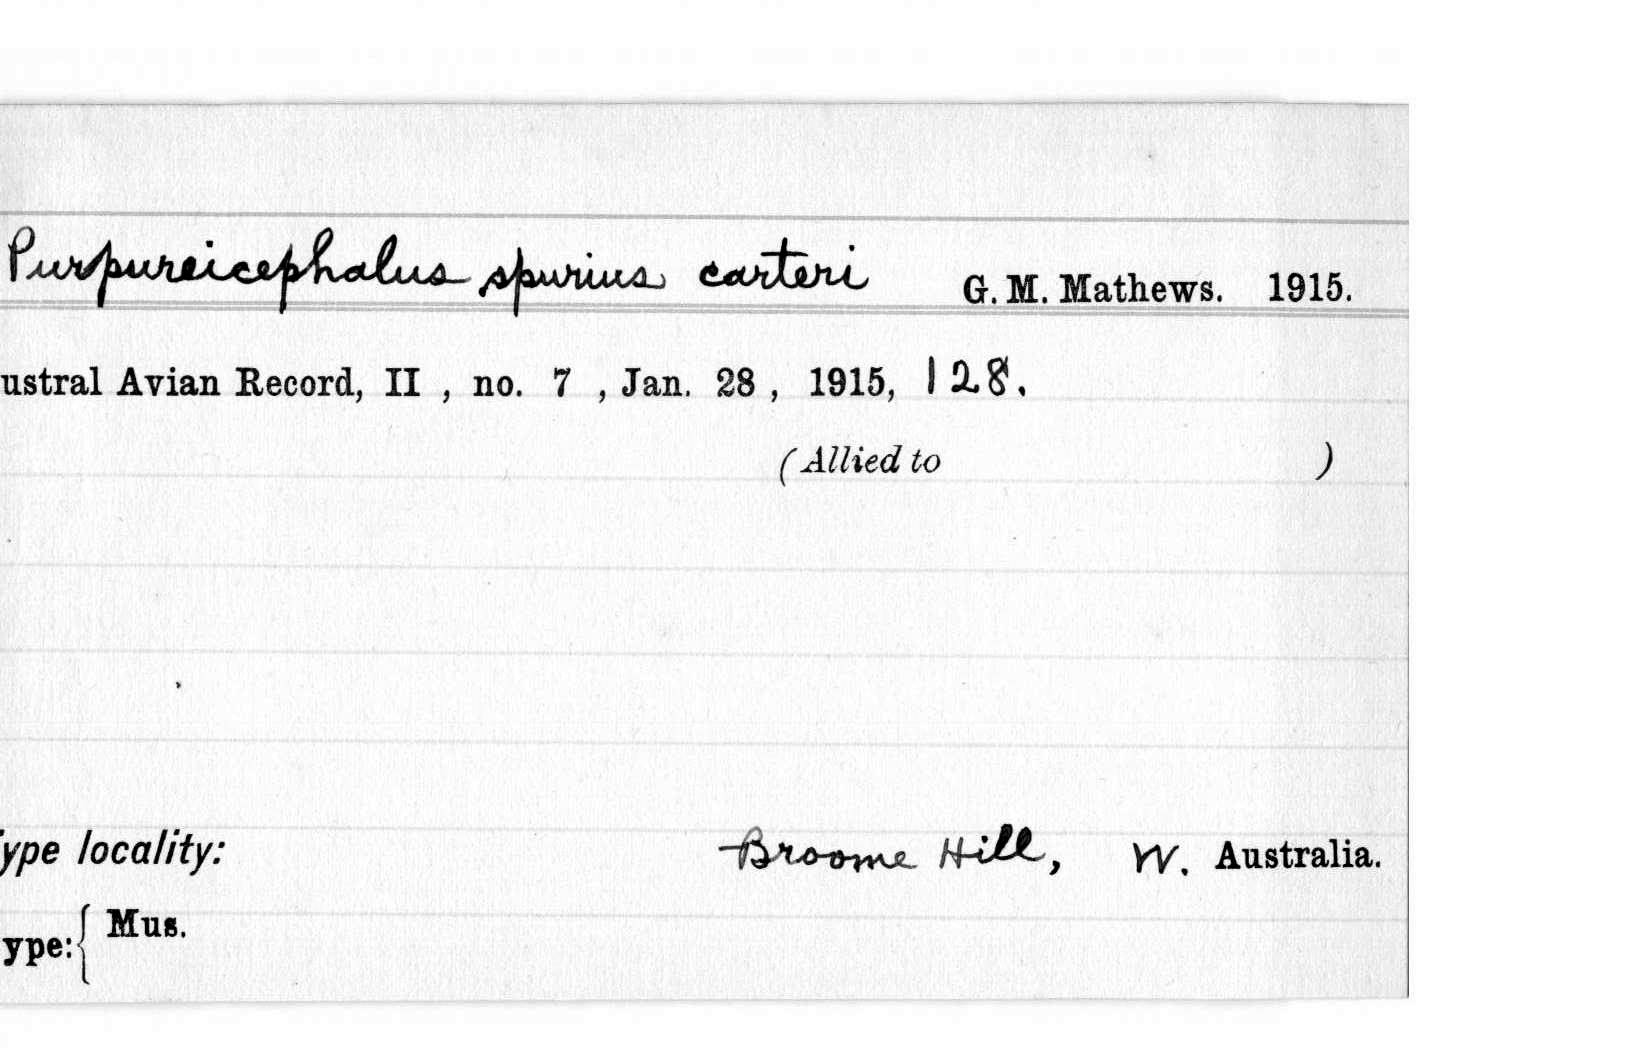 Purpureicephalus spurius carteri G. M. Mathews. 1915.
ustral Avian Record, II , no. 7 , Jan. 28 , 1915, 128.
(Allied to )
ype locality: Broome Hill, W. Australia.
ype: { Mus.